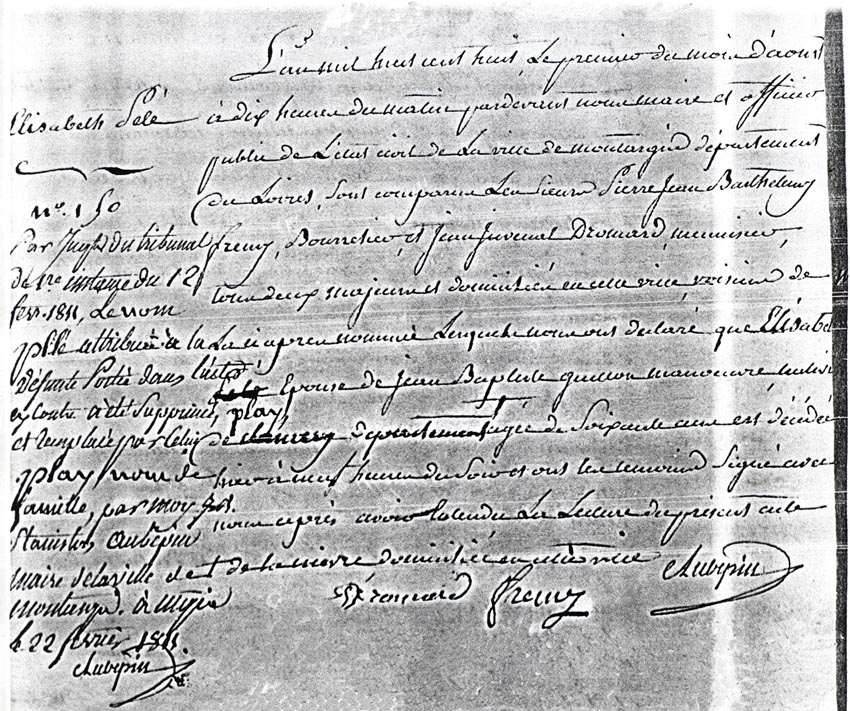 L'an mil huit cent huit Le premier du mois d'aoust
à dix heures du matin pardevant nous maire et officier
public de L'état civil de La ville de montargis département
du Loiret, sont comparus Les sieurs Pierre Jean Barthelemy
fremy, Bourrelier, et Jean Juvenal Dromard, menuisier,
tous deux majeurs et domiciliés en cette ville, voisins de
La ci après nommée Lesquels nous ont déclaré que Elisabeth
Epouse de Jean Baptiste manoeuvre native
play,
de département agée de soixante ans est décédée
hier à neuf heures du soir et ont les témoins signé avec
nous après avoir entendu La Lecture du présent acte
domiciliée en cette ville
Dromard fremy Aubepin
Elisabeth Pelé
n°. 150
Par Jugt du tribunal
de 1re instance du 12
fevr. 1811, Le nom
pelé attribué à la
Défunte Portée dans l'acte
ey contre a été Supprimé,
et remplacé par Celui
play nom de
famille, par moy
Stanislas aubépin
maire de la ville de
montargis.
le 22 février 1811.
Aubepin